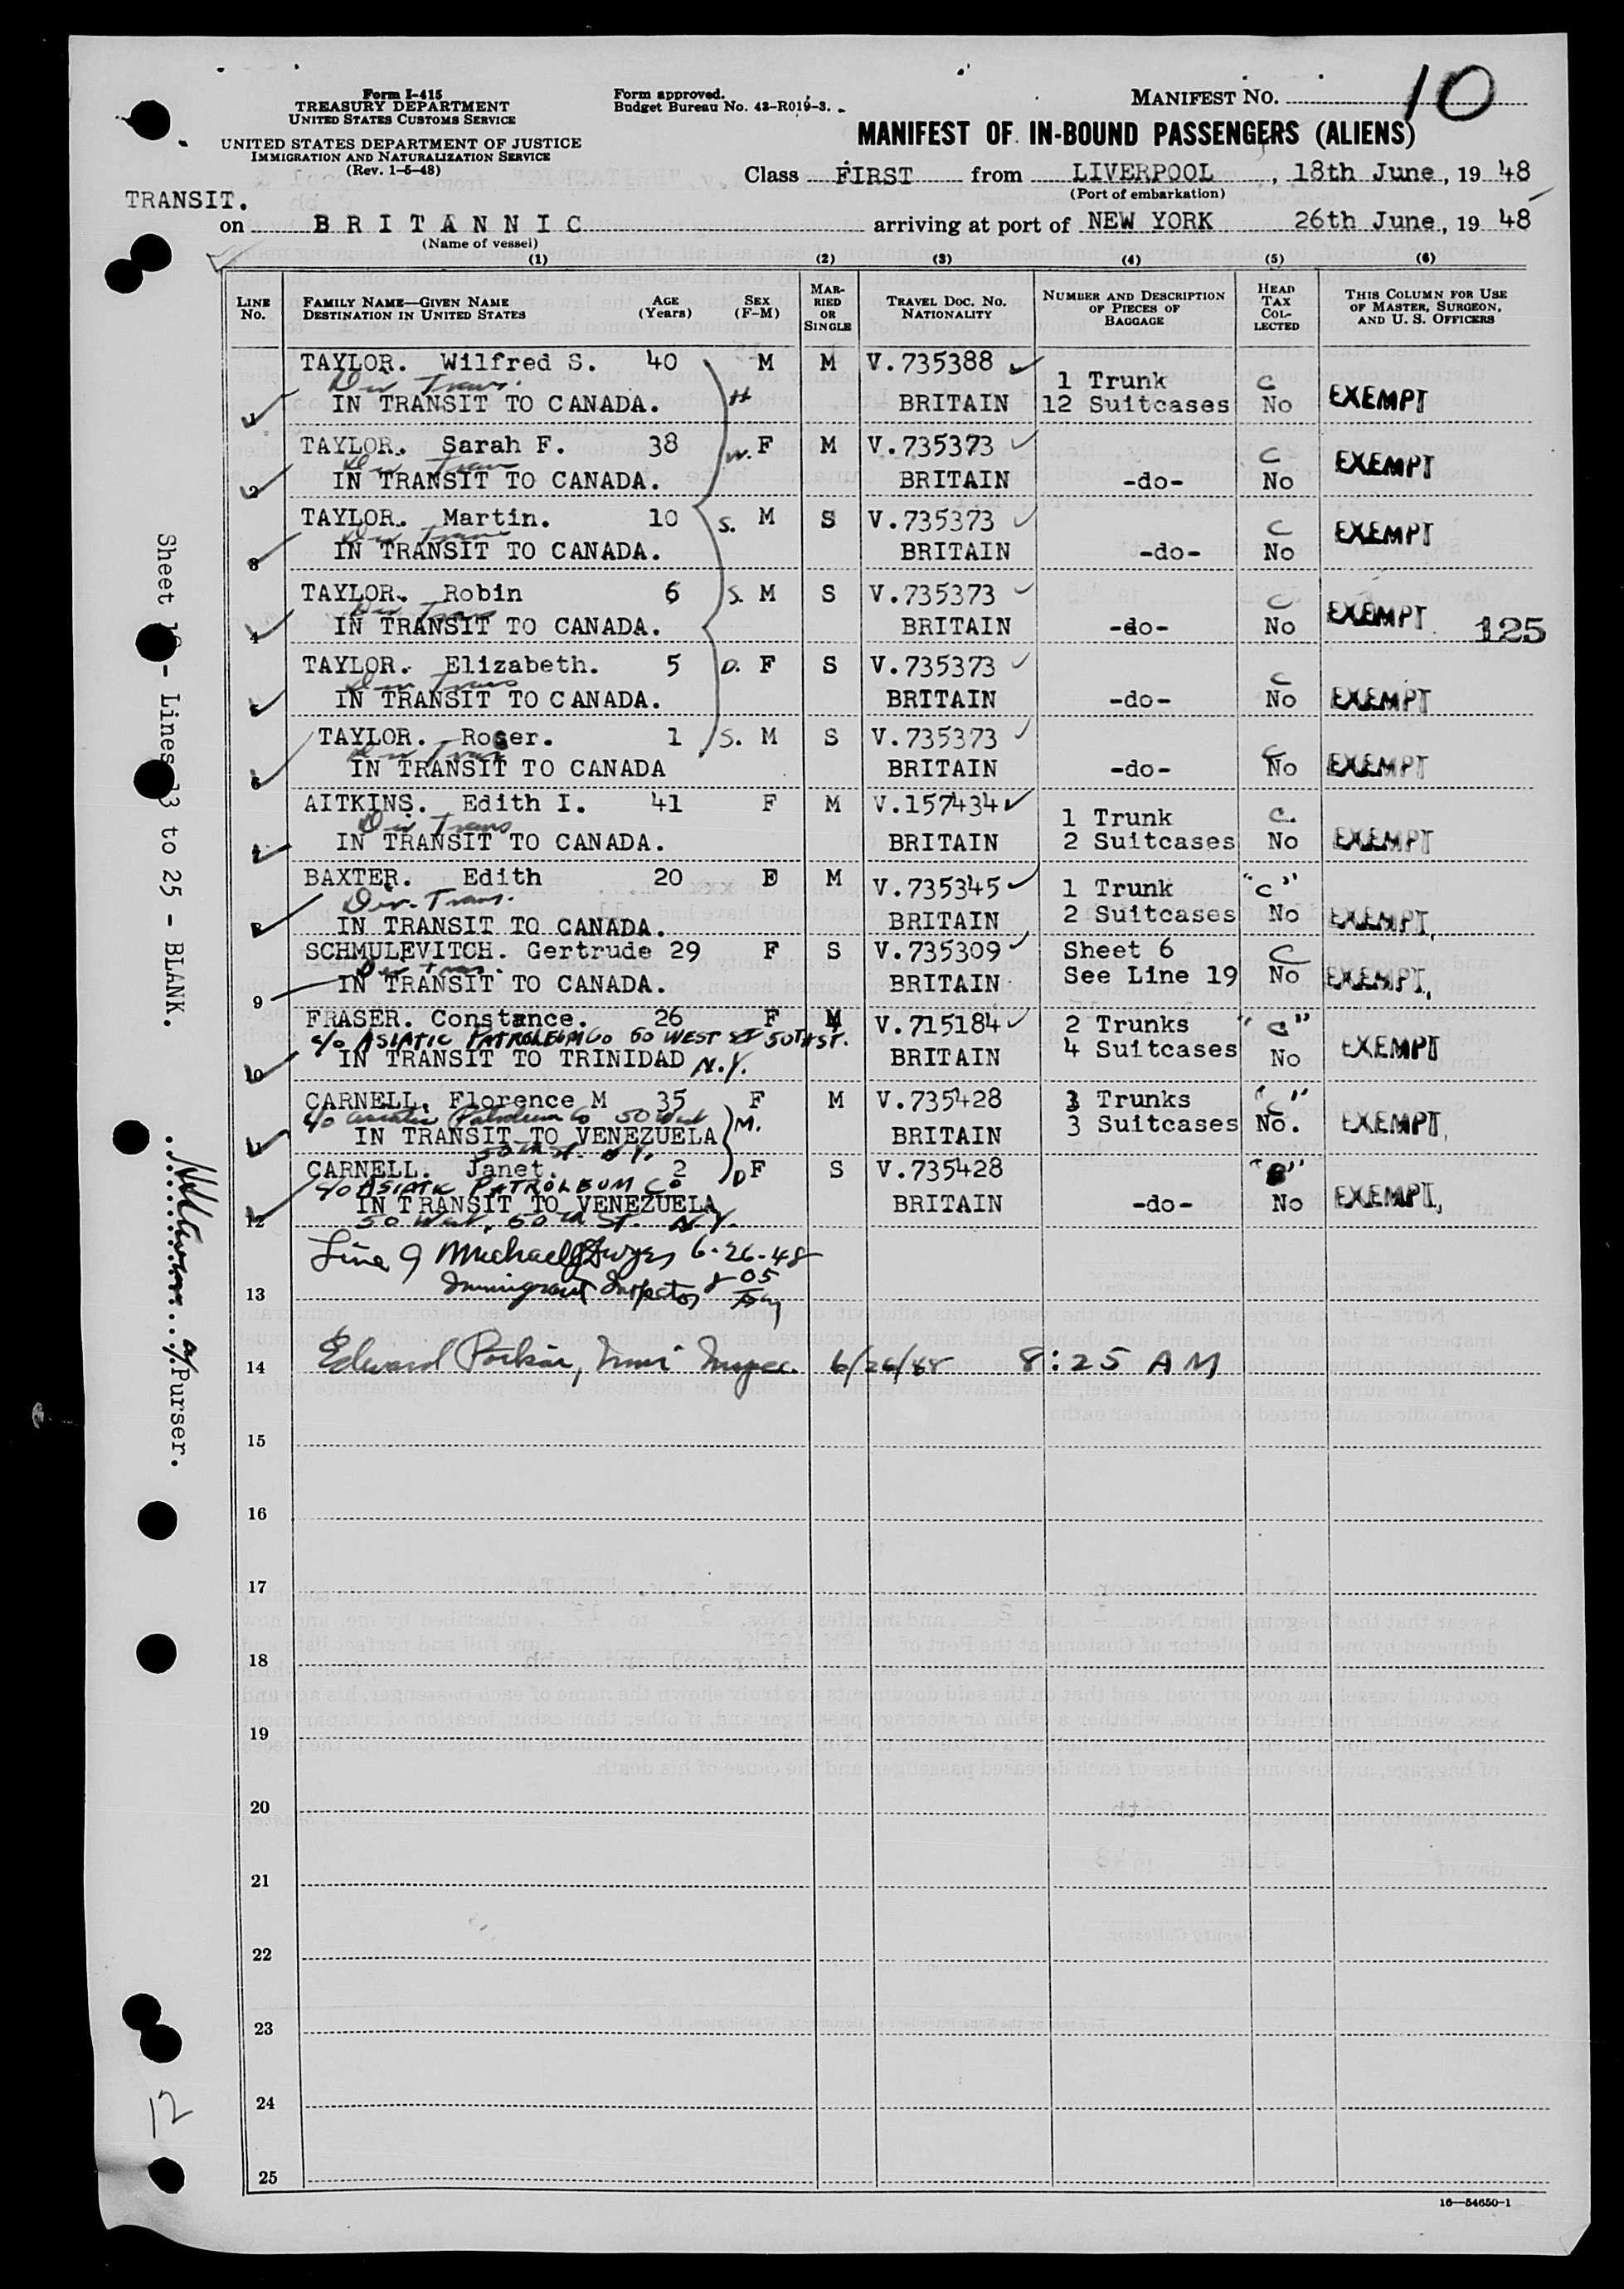 Form I-415
TREASURY DEPARTMENT
UNITED STATES CUSTOMS SERVICE
UNITED STATES DEPARTMENT OF JUSTICE
IMMIGRATION AND NATURALIZATION SERVICE
(Rev. 1-5-48)
Form approved.
Budget Bureau No. 43-R019-3.
MANIFEST NO. 10
MANIFEST OF IN-BOUND PASSENGERS (ALIENS)
Class FIRST from LIVERPOOL, 18th June, 1948
(Port of embarkation)
TRANSIT.
on BRITANNIC arriving at port of NEW YORK 26th June, 1948
(Name of vessel)
(1) (2) (3) (4) (5) (6)
LINE No. FAMILY NAME—GIVEN NAME DESTINATION IN UNITED STATES AGE (Years) SEX (F-M) MARRIED OR SINGLE TRAVEL DOC. NO. NATIONALITY NUMBER AND DESCRIPTION OF PIECES OF BAGGAGE HEAD TAX COLLECTED THIS COLUMN FOR USE OF MASTER, SURGEON, AND U. S. OFFICERS
TAYLOR. Wilfred S. 40 H M M V.735388 1 Trunk C
Div Trans.
1 IN TRANSIT TO CANADA. BRITAIN 12 Suitcases No EXEMPT
TAYLOR. Sarah F. 38 W. F M V.735373 C
Div Trans
2 IN TRANSIT TO CANADA. BRITAIN -do- No EXEMPT
TAYLOR. Martin. 10 S. M S V.735373 C
Div Trans
3 IN TRANSIT TO CANADA. BRITAIN -do- No EXEMPT
TAYLOR. Robin 6 S. M S V.735373 C
Div Trans
4 IN TRANSIT TO CANADA. BRITAIN -do- No EXEMPT 125
TAYLOR. Elizabeth. 5 D. F S V.735373 C
Div Trans
5 IN TRANSIT TO CANADA. BRITAIN -do- No EXEMPT
TAYLOR. Roger. 1 S. M S V.735373 C
Div Trans
6 IN TRANSIT TO CANADA BRITAIN -do- No EXEMPT
AITKINS. Edith I. 41 F M V.157434 1 Trunk C.
Div Trans
7 IN TRANSIT TO CANADA. BRITAIN 2 Suitcases No EXEMPT
BAXTER. Edith 20 F M V.735345 1 Trunk "C"
Div. Trans.
8 IN TRANSIT TO CANADA. BRITAIN 2 Suitcases No EXEMPT.
SCHMULEVITCH. Gertrude 29 F S V.735309 Sheet 6 C
Div trans.
9 IN TRANSIT TO CANADA. BRITAIN See Line 19 No EXEMPT.
FRASER. Constance. 26 F M V.715184 2 Trunks "C"
c/o ASIATIC PATROLEUM Co 50 WEST 50TH ST.
10 IN TRANSIT TO TRINIDAD N.Y. BRITAIN 4 Suitcases No EXEMPT
CARNELL. Florence M 35 F M V.735428 3 Trunks "C"
c/o Asiatic Patroleum Co 50 West
11 IN TRANSIT TO VENEZUELA M. BRITAIN 3 Suitcases No. EXEMPT.
50th St. N.Y.
CARNELL. Janet. 2 D F S V.735428
c/o ASIATIC PATROLEUM Co
12 IN TRANSIT TO VENEZUELA BRITAIN -do- No EXEMPT.
50 West, 50th St. N.Y.
Line 9 Michael J Dwyer 6-26-48
13 Immigrant Inspector 8 05
14 Edward Parker, Immi Inspec. 6/26/48 8:25 AM
15
16
17
18
19
20
21
22
23
24
25
16—54650-1
Sheet 10 - Lines 13 to 25 - BLANK.
a/Purser.
12